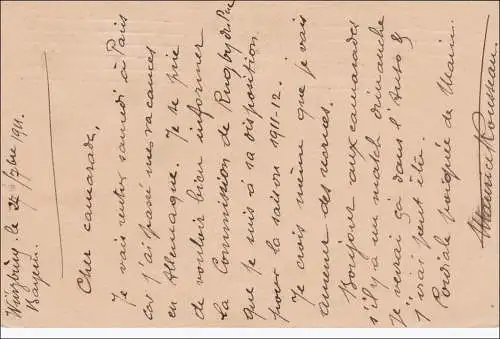 Würzburg le 22 7bre 1911.
Bayern.
Cher camarade,
Je vais rentrer samedi à Paris
car j'ai passé mes vacances
en Allemagne. Je te prie
de vouloir bien informer
la Commission de Rugby du
que je suis à sa disposition
pour la saison 1911-12.
Je crois même que je vais
amener des
Bonjour aux camarades
s'il y a un match dimanche
je verrai ça dans l'Auto &
j'irai peut être.
Cordiale poignée de main.
Maurice Rousseau